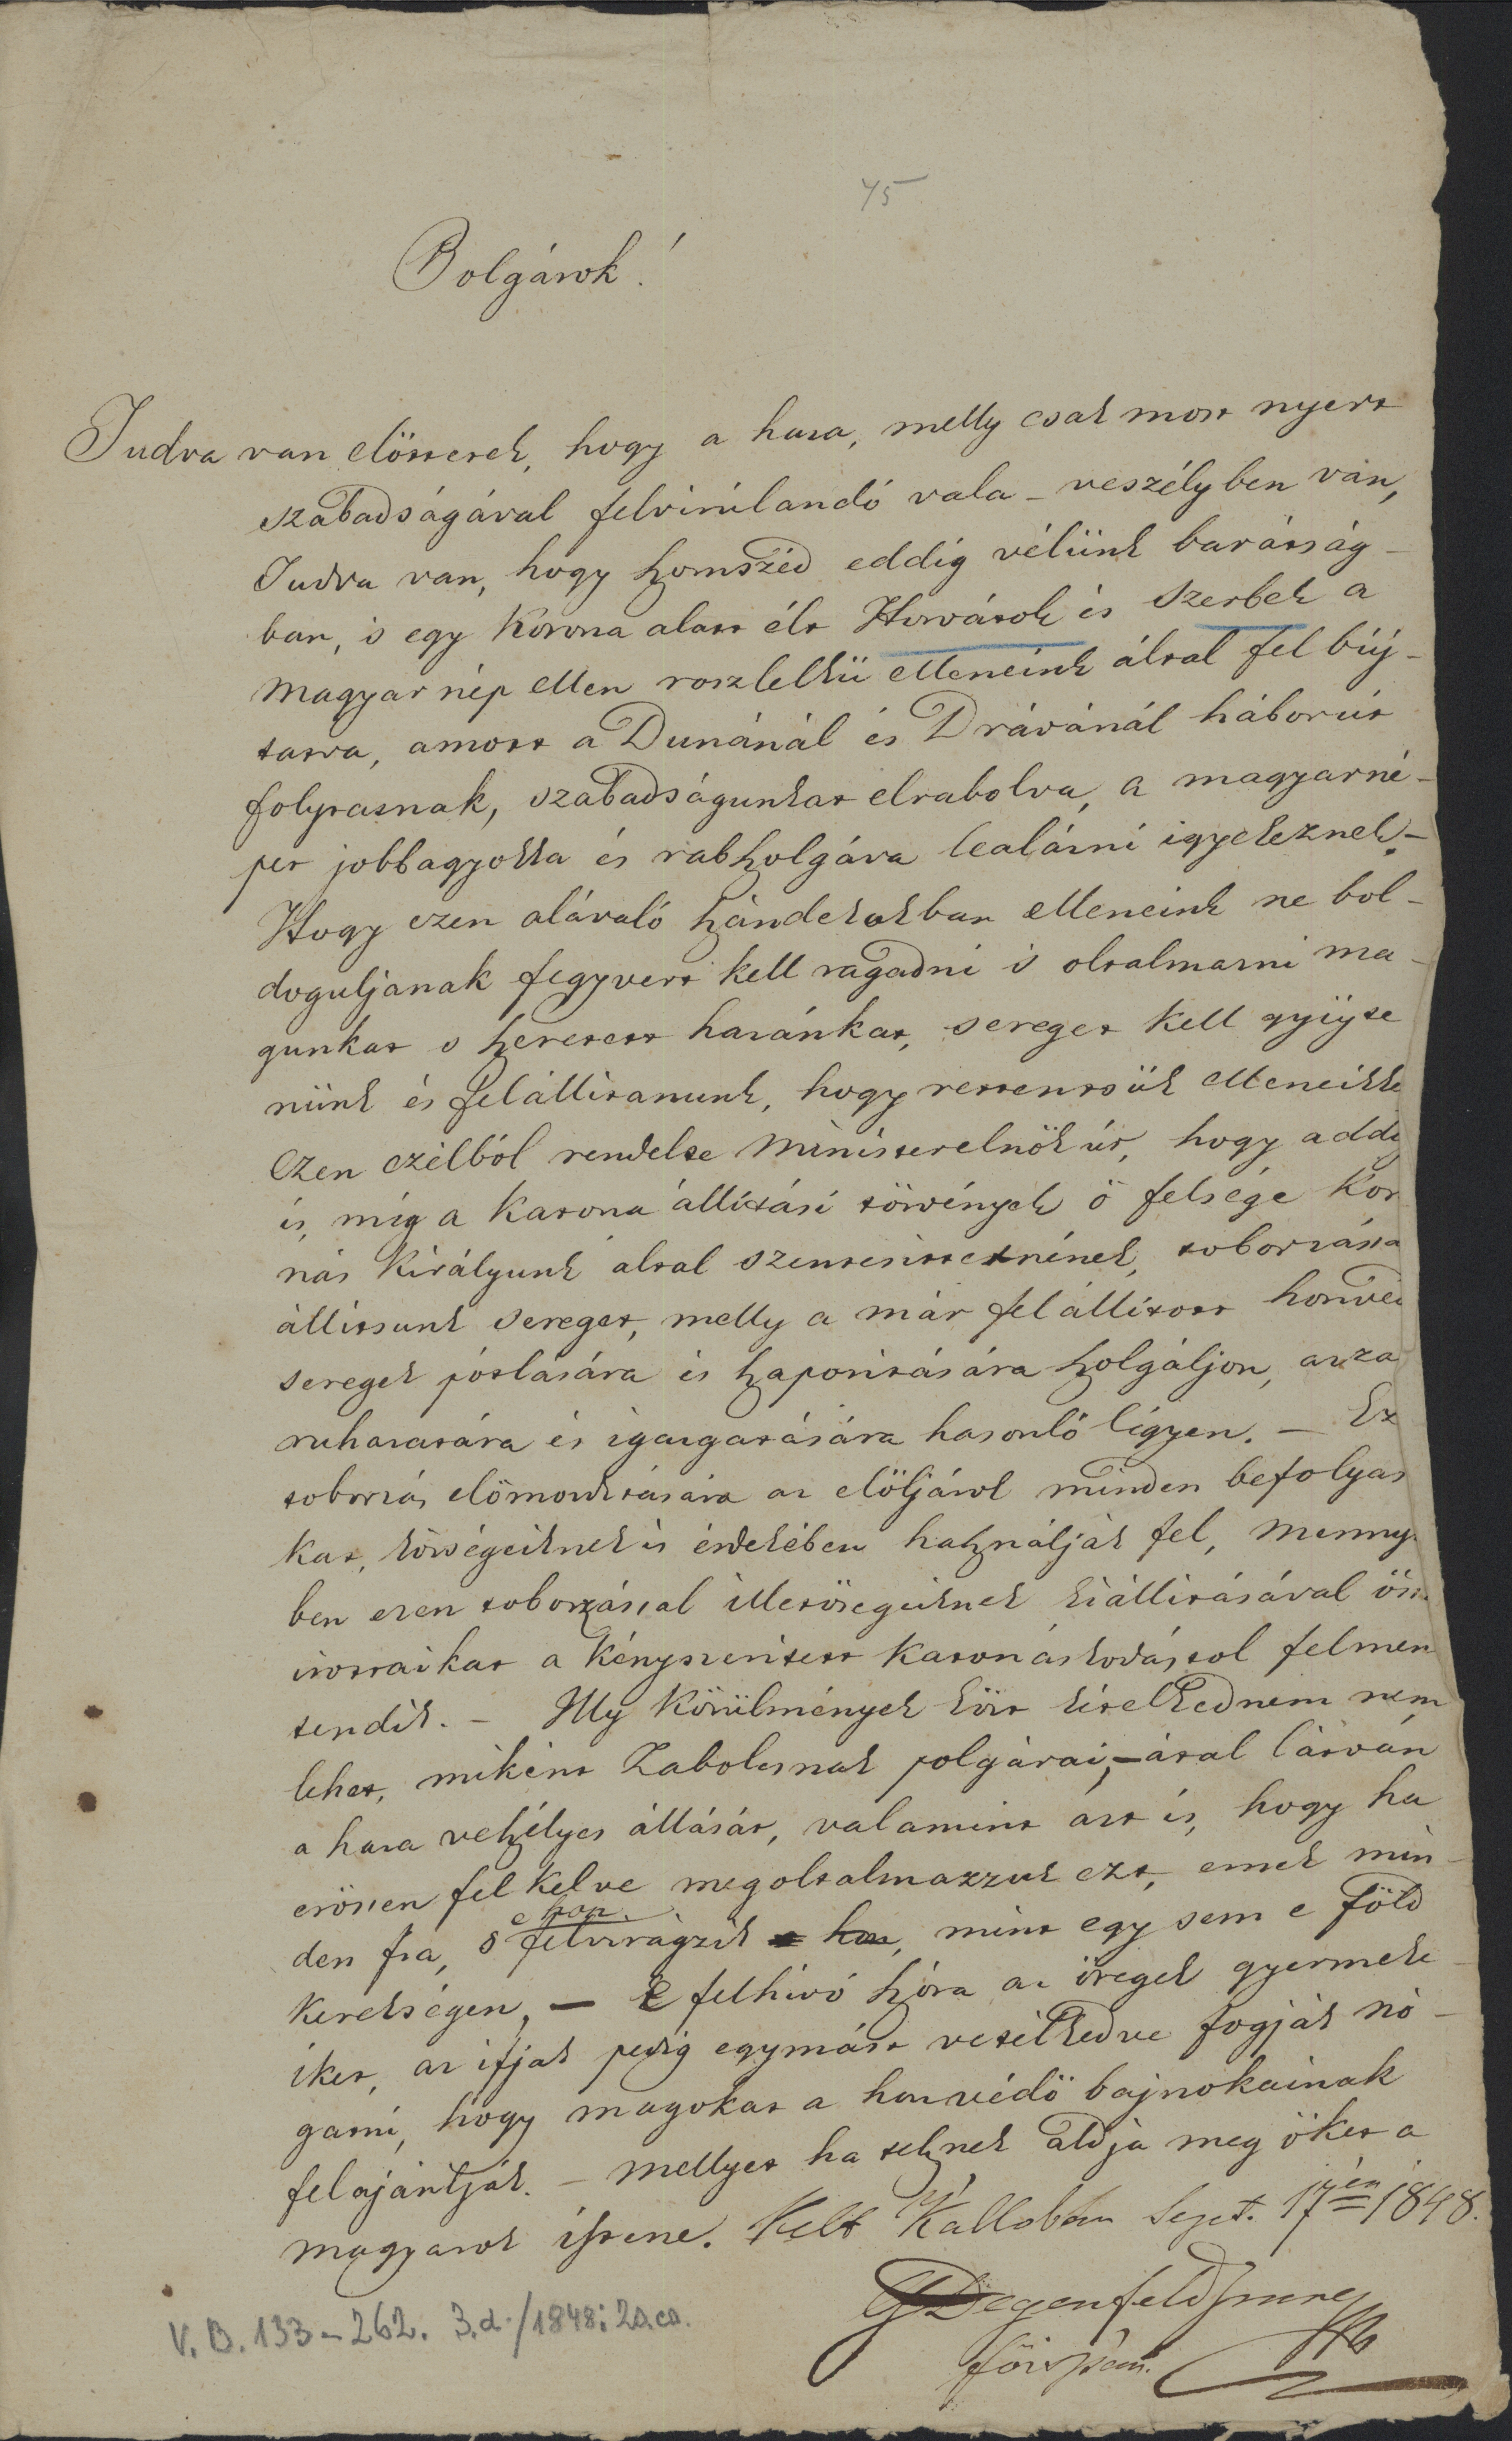 45
Polgárok!
Tudva van előttetek, hogy a haza, melly csak most nyert
szabadságával felvirúlandó vala – veszélyben van,
Tudva van, hogy szomszéd eddig vélünk barátság-
ban, s egy korona alatt élt Horvátok és Szerbek a
magyar nép ellen roszlelkü elleneink által fel búj-
tatva, amott a Dunánál és Drávánál háborút
folytatnak, szabadságunkat elrabolva, a magyar né-
pet jobbagyokka és rabszolgáva lealázni igyekeznek. –
Hogy ezen alávaló szándékukban elleneink ne bol-
doguljanak fegyvert kell ragadni s oltalmazni ma-
gunkat s szeretett hazánkat, sereget kell gyüjte
nünk és felállitanunk, hogy rettentsük elleneikke
Ezen czélból rendelte Ministerelnök úr, hogy addig
is, míg a katona állitási törvények ő felsége kor
nás Királyunk által szentesittetnének, toborzássa
állitsunk sereget, melly a már felállitott honvéd
seregek pótlására és szaporitására szolgáljon, azza
ruházatára és igazgatására hasonló légyen. – Ez
toborzás előmozditására az elöljárok minden befolyas
kat, községeiknek is érdekében használják fel, menny
ben ezen toborzással illetőségeiknek kiállitásával össz
irottaikat a kényszeritett katonáskodástol felmen
tendik. – Illy körülmények közt kételkednem nem
lehet, miként Szabolcsnak polgárai, – által látván
a haza veszélyes állását, valamint azt is, hogy ha
erőssen fel kelve megoltalmazzuk ezt, ennek min-
den fia, s felvirágzik e hon, mint egy sem e föld
kerekségen, – E felhivó szóra az öregek gyermeke-
iket, az ifjak pedig egymást vetélkedve fogják nó-
gatni, hogy magokat a hon védő bajnokainak
felajántják. – mellyet ha tesznek áldja meg őket a
magyarok istene. Kelt Kallóban Sept. 17én 1848.
G Degenfeld Imre
főispán.
V. B. 133–262. 3.d./1848: 20.cs.